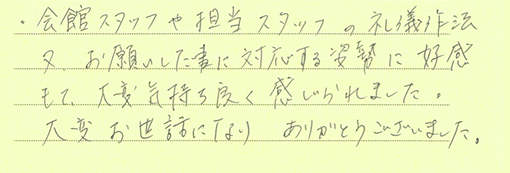 ・会館スタッフや担当スタッフの礼儀作法
又、お願いした事に対応する姿勢に好感
もて、大変気持ち良く感じられました。
大変お世話になり ありがとうございました。